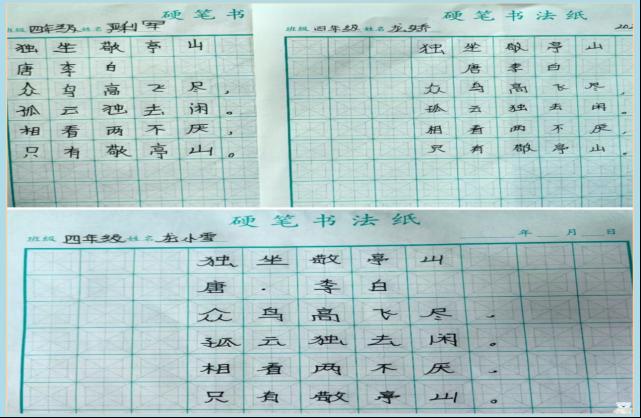 硬笔书
班级 四年级 姓名
独坐敬亭山
唐李白
众鸟高飞尽，
孤云独去闲。
相看两不厌，
只有敬亭山。
硬笔书法纸
班级 四年级 姓名 龙娇
独坐敬亭山
唐李白
众鸟高飞尽，
孤云独去闲。
相看两不厌，
只有敬亭山。
硬笔书法纸
班级 四年级 姓名 龙小雪 年 月 日
独坐敬亭山
唐·李白
众鸟高飞尽，
孤云独去闲。
相看两不厌，
只有敬亭山。